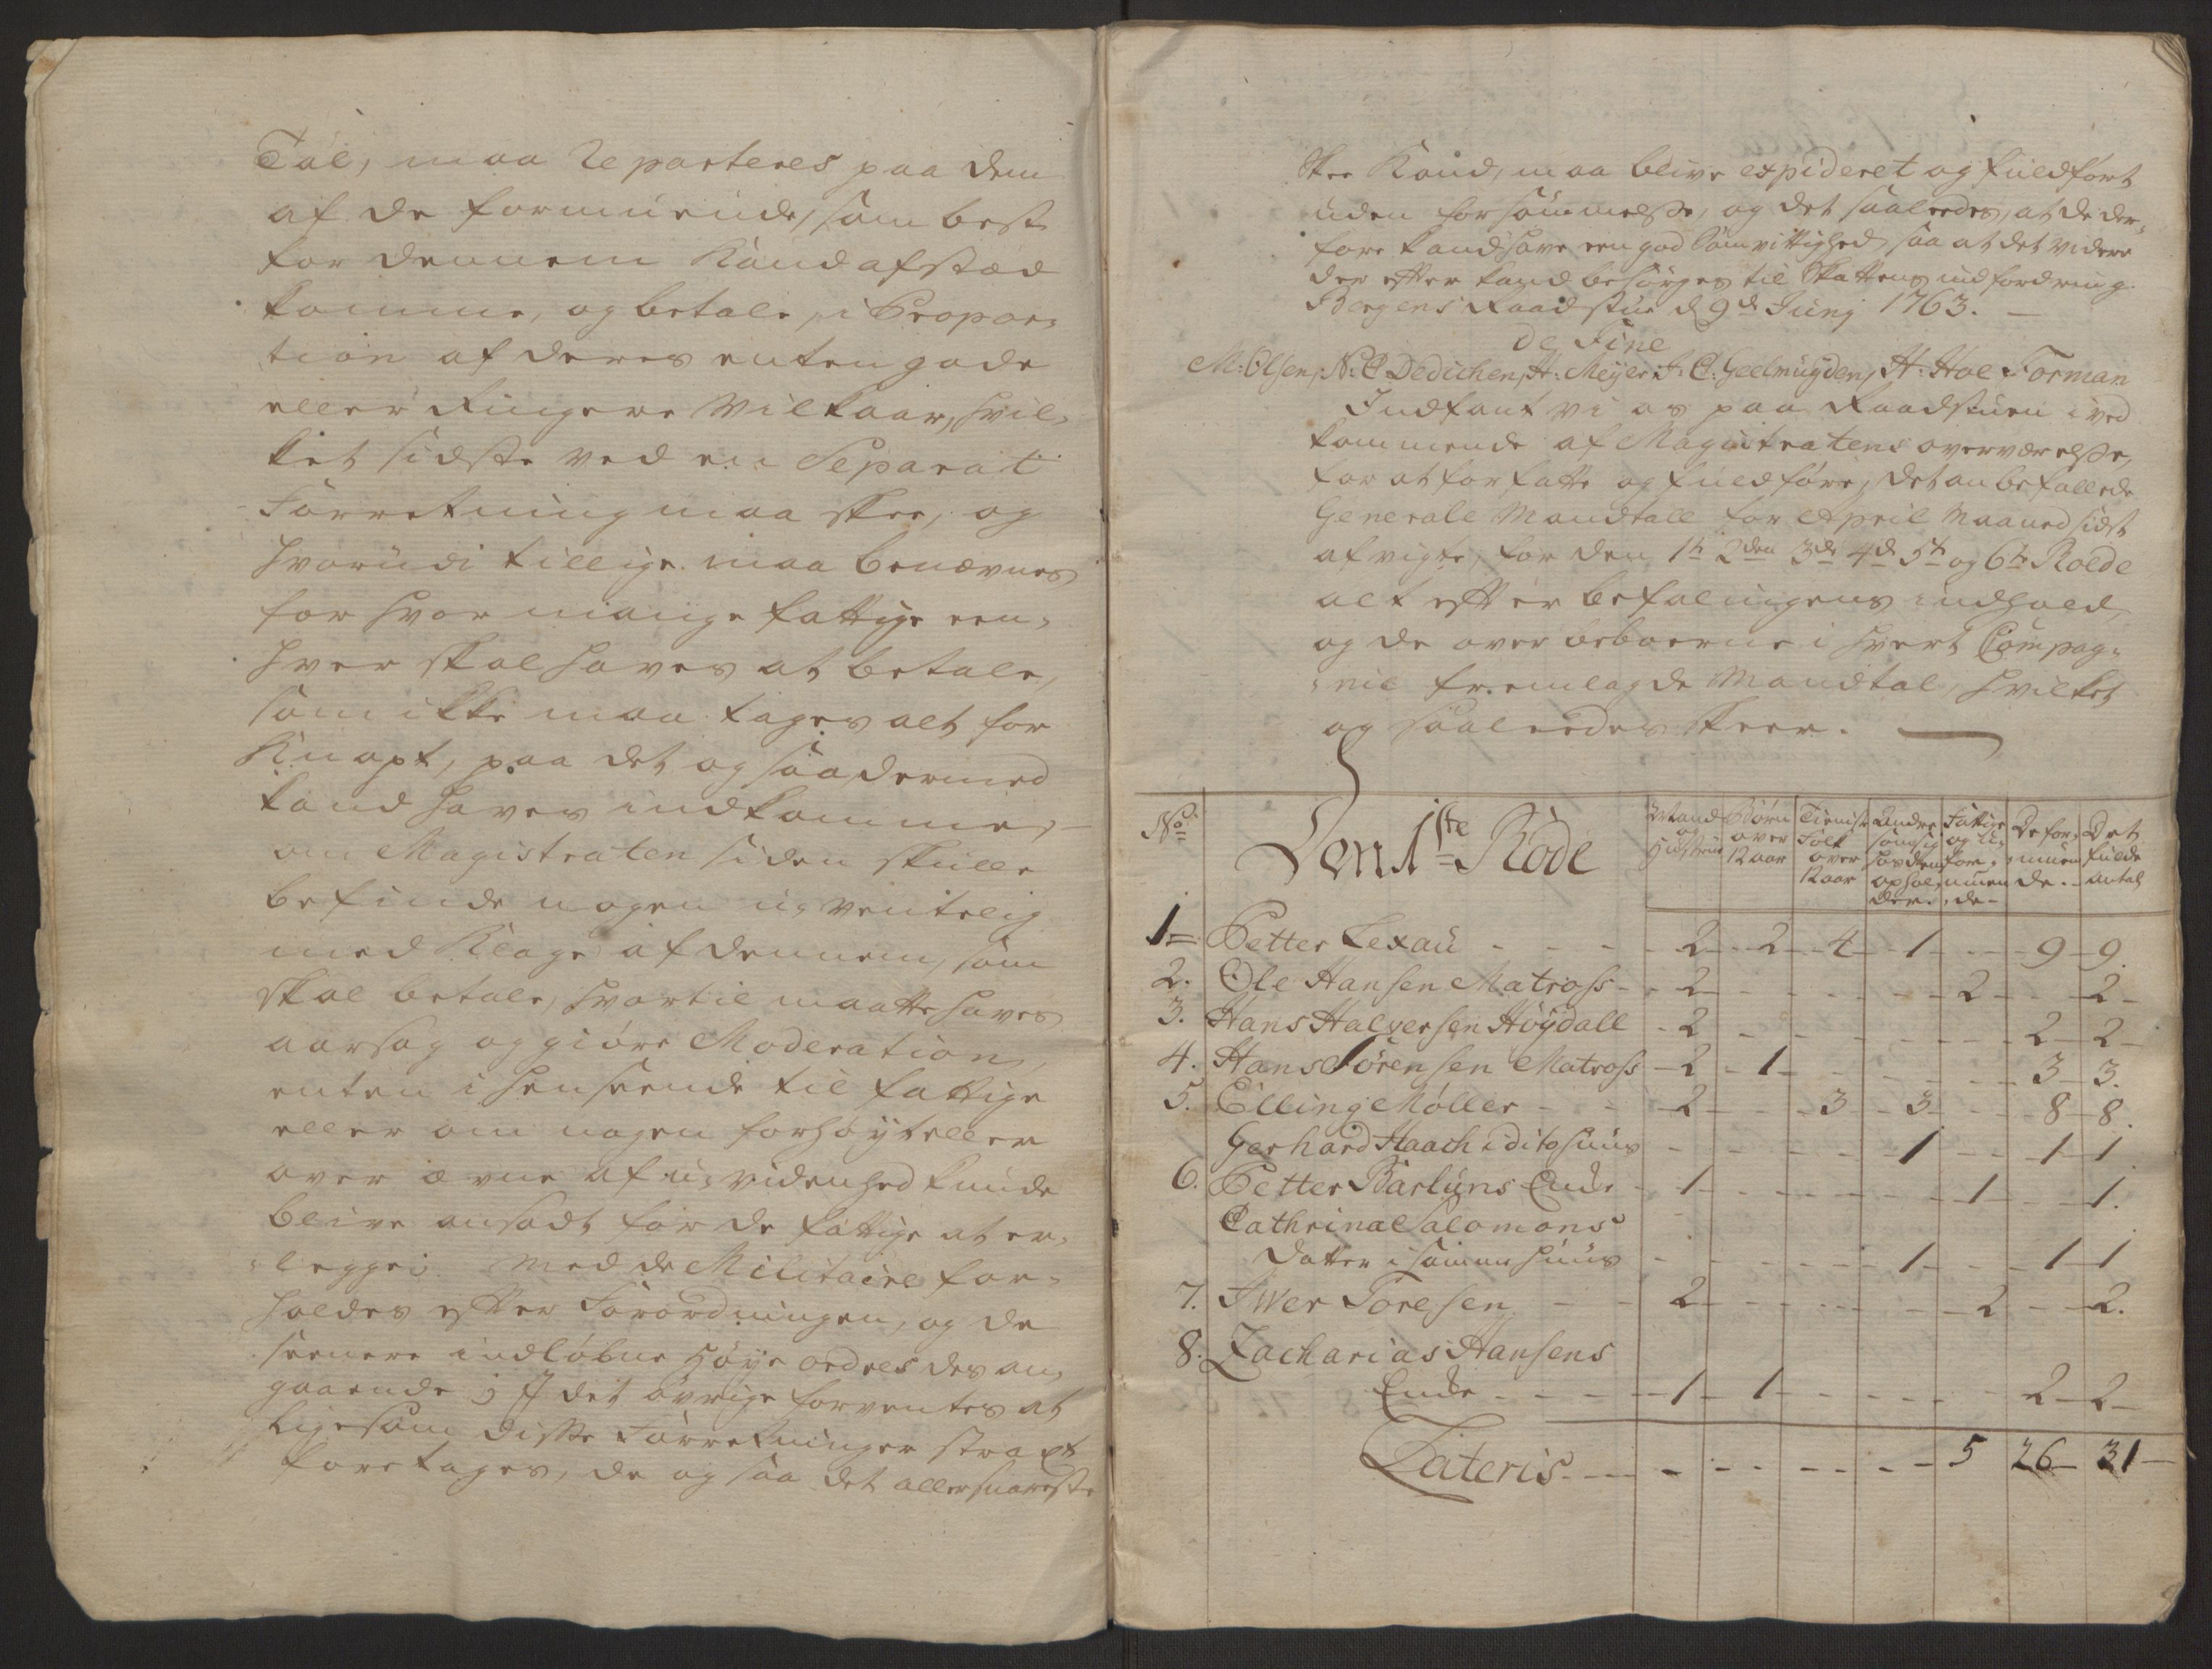 Tal, maa Reparteres paa dem
af de formuende, som best
for dennem kand afsted
komme, og betale, i Propor-
tion af deres enten gode
eller Ringere Vilkaar, hvil-
ket sidste ved en Separat
Forretning maa skee, og
hvorudi tillige maa benævnes
for hvor mange fattige een-
hver skal haves at betale,
som ikke maa tages alt for
Knapt, paa det og saa dermed
kand haves indkomme,
om Magistraten siden skulle
befinde nogen u-ventelig
med Klage af dennem, som
skal betale, hvortil maatte haves
aarsag og giøre Moderation,
enten i henseende til fattige
eller om nogen forhøyt eller
over ævne af u-videnhed kunde
blive ansadt for de fattige at er-
legge; med de Militaire for-
holdes efter Forordningen, og de
seenere indløbne høye ordres des an-
gaaende; I det øvrige forventes at
ligesom disse Forretninger strax
foretages, de og saa det allersnareste
skee Kand, maa blive expideret og fuldført
uden forsømmelse, og det saaledes, at de der-
fore kand have een god Samvittighed, saa at det videre
der efter kand besørges til Skattens indfordring.
Bergens Raadstue d 9de Junj 1763.
de Fine
M: Olsen, N: C Dedichen, H: Meyer, J: C: Geelmuyden, H: Hoe Forman
Indfant vi os paa Raadstuen i ved
kommende af Magistratens overværelse,
for at forfatte og fuldføre, det anbefallede
Generale Mandtall for April Maaned sidst
afvigte, for den 1te 2den 3de 4de 5te og 6te Roede
alt efter befalingens indhold,
og de over beboerne i hvert Compag-
nie fremlagde Mandtal, hvilket
og saaledes skeer.
No Den 1ste Rode Mand og Hustrue Børn over 12 aar Tieniste Folk over 12 aar Andre som sig hos dem opholder Fattige og u-formuende De formuende Det fulde antal
1 Petter Lexau 2 2 4 1 9 9
2. Ole Hansen Matross 2 2 2
3. Hans Halversen Høydall 2 2 2
4. Hans Sørensen Matross 2 1 3 3.
5. Elling Møller 2 3 3 8 8.
Gerhard Haach i dito huus 1 1 1
6. Petter Barluns Enke 1 1 1.
Cathrina Salomons
datter i samme huus 1 1 1
7. Iwer Toresen 2 2 2.
8. Zacharias Hansens
Enke 1 1 2 2
Lateris 5 26 31